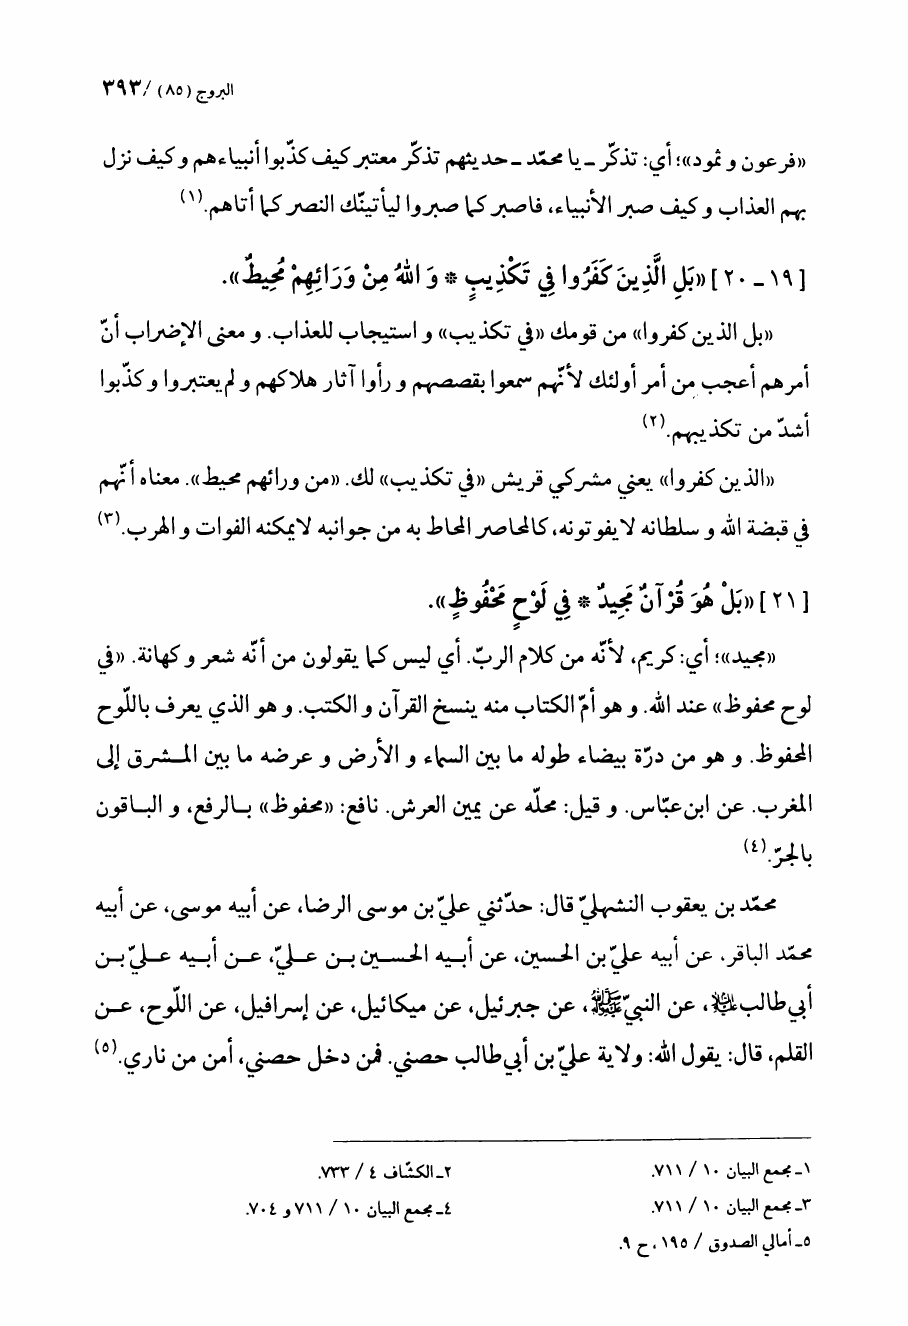 البروج (٨٥) / ٣٩٣
«فرعون و ثمود»؛ أي: تذكّر ـ يا محمّد ـ حديثهم تذكّر معتبر كيف كذّبوا أنبياءهم و كيف نزل
بهم العذاب و كيف صبر الأنبياء، فاصبر كما صبروا ليأتينّك النصر كما أتاهم.(١)
[١٩ ـ ٢٠] «بَلِ الَّذِينَ كَفَرُوا فِي تَكْذِيبٍ * وَ اللهُ مِنْ وَرَائِهِمْ مُحِيطٌ».
«بل الذين كفروا» من قومك «في تكذيب» و استيجاب للعذاب. و معنى الإضراب أنّ
أمرهم أعجب من أمر أولئك لأنّهم سمعوا بقصصهم و رأوا آثار هلاكهم و لم يعتبروا و كذّبوا
أشدّ من تكذيبهم.(٢)
«الذين كفروا» يعني مشركي قريش «في تكذيب» لك. «من ورائهم محيط». معناه أنّهم
في قبضة الله و سلطانه لا يفوتونه، كالمحاصر المحاط به من جوانبه لا يمكنه الفوات و الهرب.(٣)
[٢١] «بَلْ هُوَ قُرْآنٌ مَجِيدٌ * فِي لَوْحٍ مَحْفُوظٍ».
«مجيد»؛ أي: كريم، لأنّه من كلام الربّ. أي ليس كما يقولون من أنّه شعر و كهانة. «في
لوح محفوظ» عند الله. و هو أمّ الكتاب منه ينسخ القرآن و الكتب. و هو الذي يعرف باللّوح
المحفوظ. و هو من درّة بيضاء طوله ما بين السماء و الأرض و عرضه ما بين المـشرق إلى
المغرب. عن ابن عبّاس. و قيل: محلّه عن يمين العرش. نافع: «محفوظ» بـالرفع، و البـاقون
بالجرّ.(٤)
محمّد بن يعقوب النهشليّ قال: حدّثني عليّ بن موسى الرضا، عن أبيه موسى، عن أبيه
محمّد الباقر، عن أبيه عليّ بن الحسين، عن أبـيه الحسـين بـن عـليّ، عـن أبـيه عـليّ بـن
أبي طالب عليه السلام، عن النبيّ ﷺ، عن جبرئيل، عن ميكائيل، عن إسرافيل، عن اللّوح، عـن
القلم، قال: يقول الله: ولاية عليّ بن أبي طالب حصني. فمن دخل حصني، أمن من ناري.(٥)
١ـ مجمع البيان ١٠ / ٧١١.
٢ـ الكشّاف ٤ / ٧٣٣.
٣ـ مجمع البيان ١٠ / ٧١١.
٤ـ مجمع البيان ١٠ / ٧١١ و ٧٠٤.
٥ـ أمالي الصدوق / ١٩٥، ح ٩.